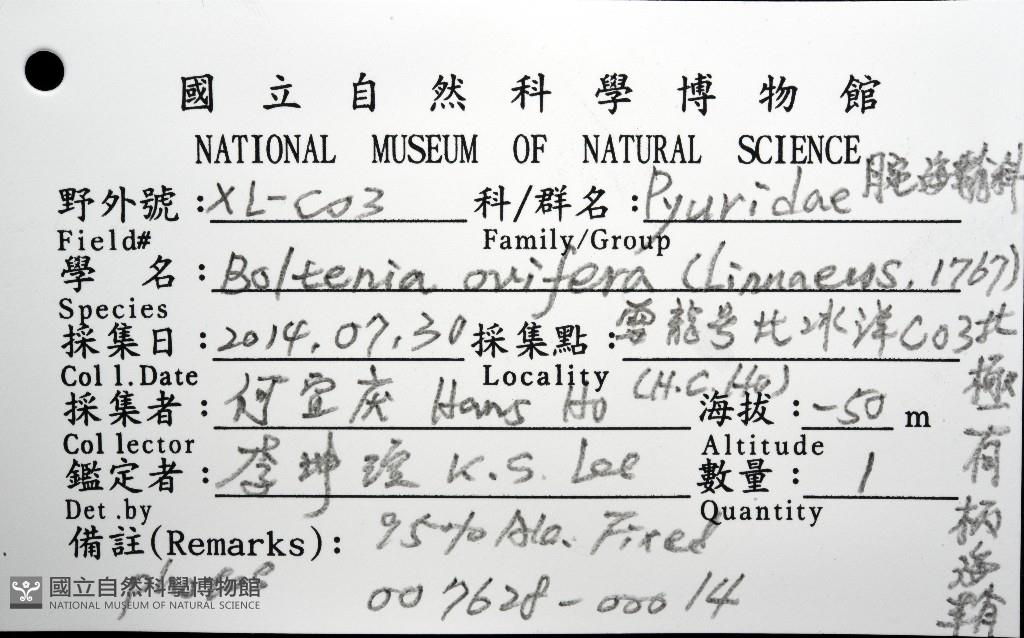 國立自然科學博物館
NATIONAL MUSEUM OF NATURAL SCIENCE
野外號:XL-C03 科/群名:Pyuridae 腕海鞘科
Field# Family/Group
學 名:Boltenia ovifera (Linnaeus, 1767)
Species
採集日:2014.07.30 採集點:雪龍号北冰洋C03北
Coll.Date Locality
極有柄海鞘
採集者:何宜庆 Hans Ho (H.C. Ho) 海拔:-50 m
Collector Altitude
鑑定者:李坤瑄 K.S. Lee 數量:1
Det.by Quantity
備註(Remarks): 95% Alc. Fixed
007628-00014
國立自然科學博物館
NATIONAL MUSEUM OF NATURAL SCIENCE